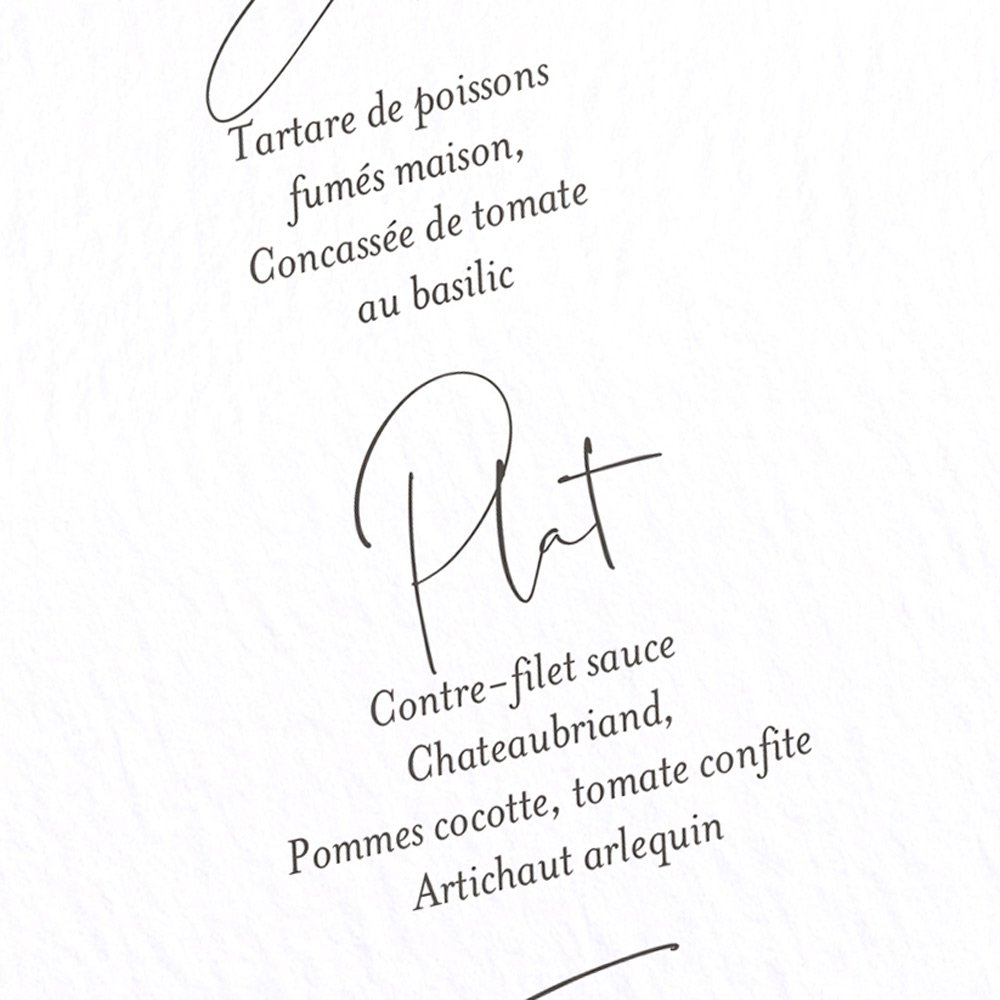 Tartare de poissons
fumés maison,
Concassée de tomate
au basilic
Plat
Contre-filet sauce
Chateaubriand,
Pommes cocotte, tomate confite
Artichaut arlequin